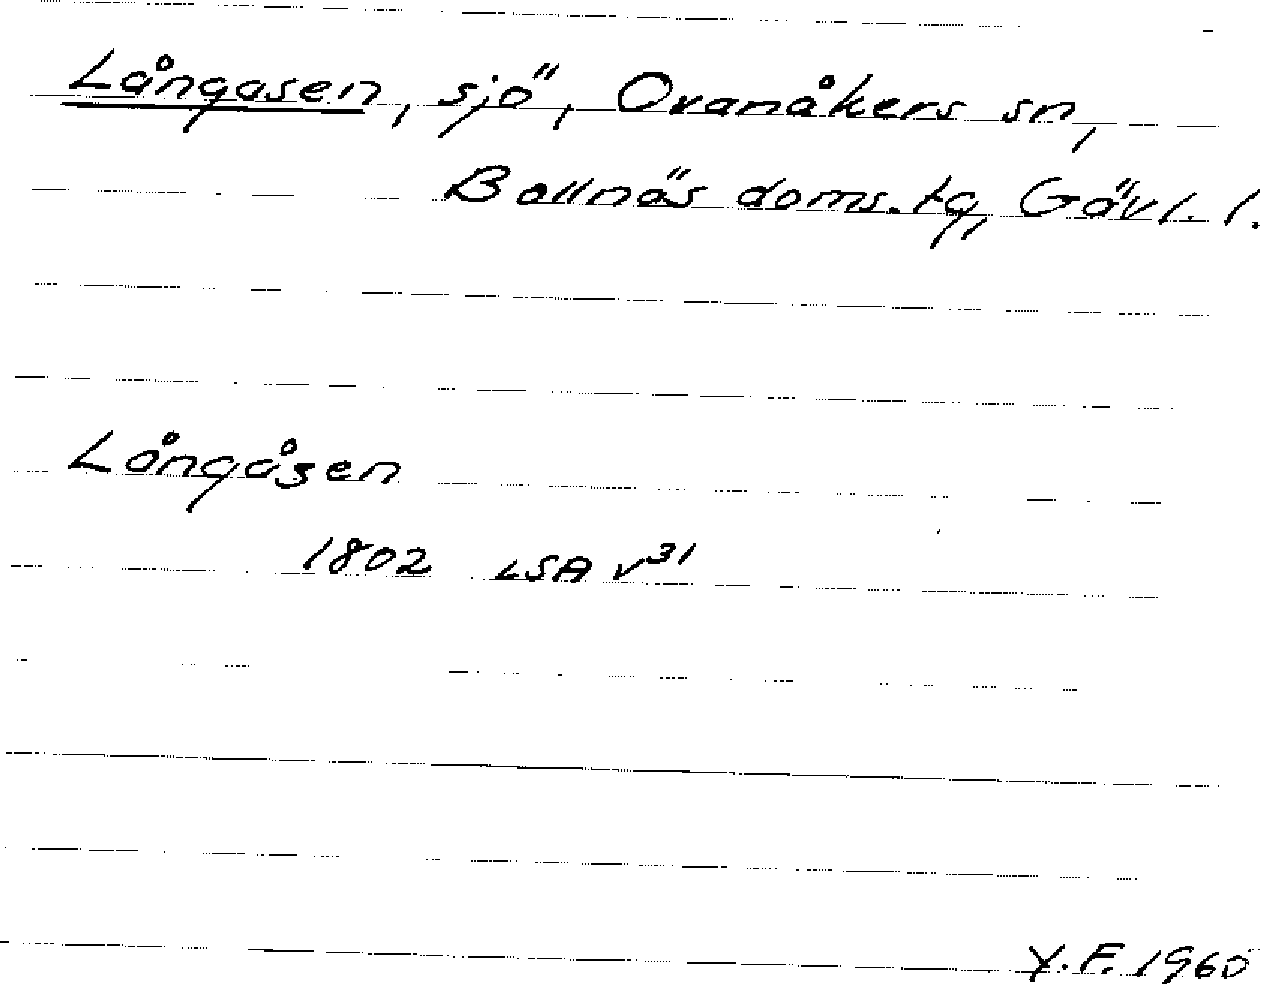 Långasen, sjö, Ovanåkers sn,
Bollnäs doms.tg, Gävl. l.
Långåsen
1802 LSA v³¹
Y.F. 1960